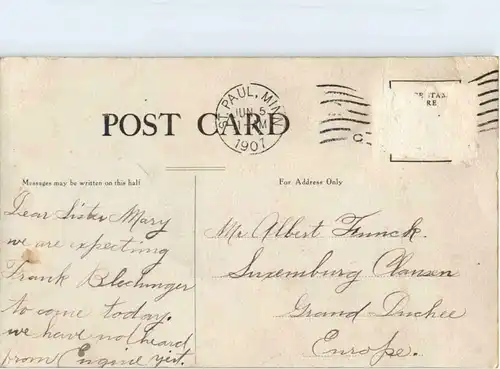 POST CARD
ST. PAUL, MINN.
JUN 5
1907
Messages may be written on this half
For Address Only
Dear Sister Mary
we are expecting
Frank Blechinger
to come today.
we have not heard
from Eugine yet.
Mr Albert Funck.
Luxemburg Clausen
Grand-Duchee
Europe.